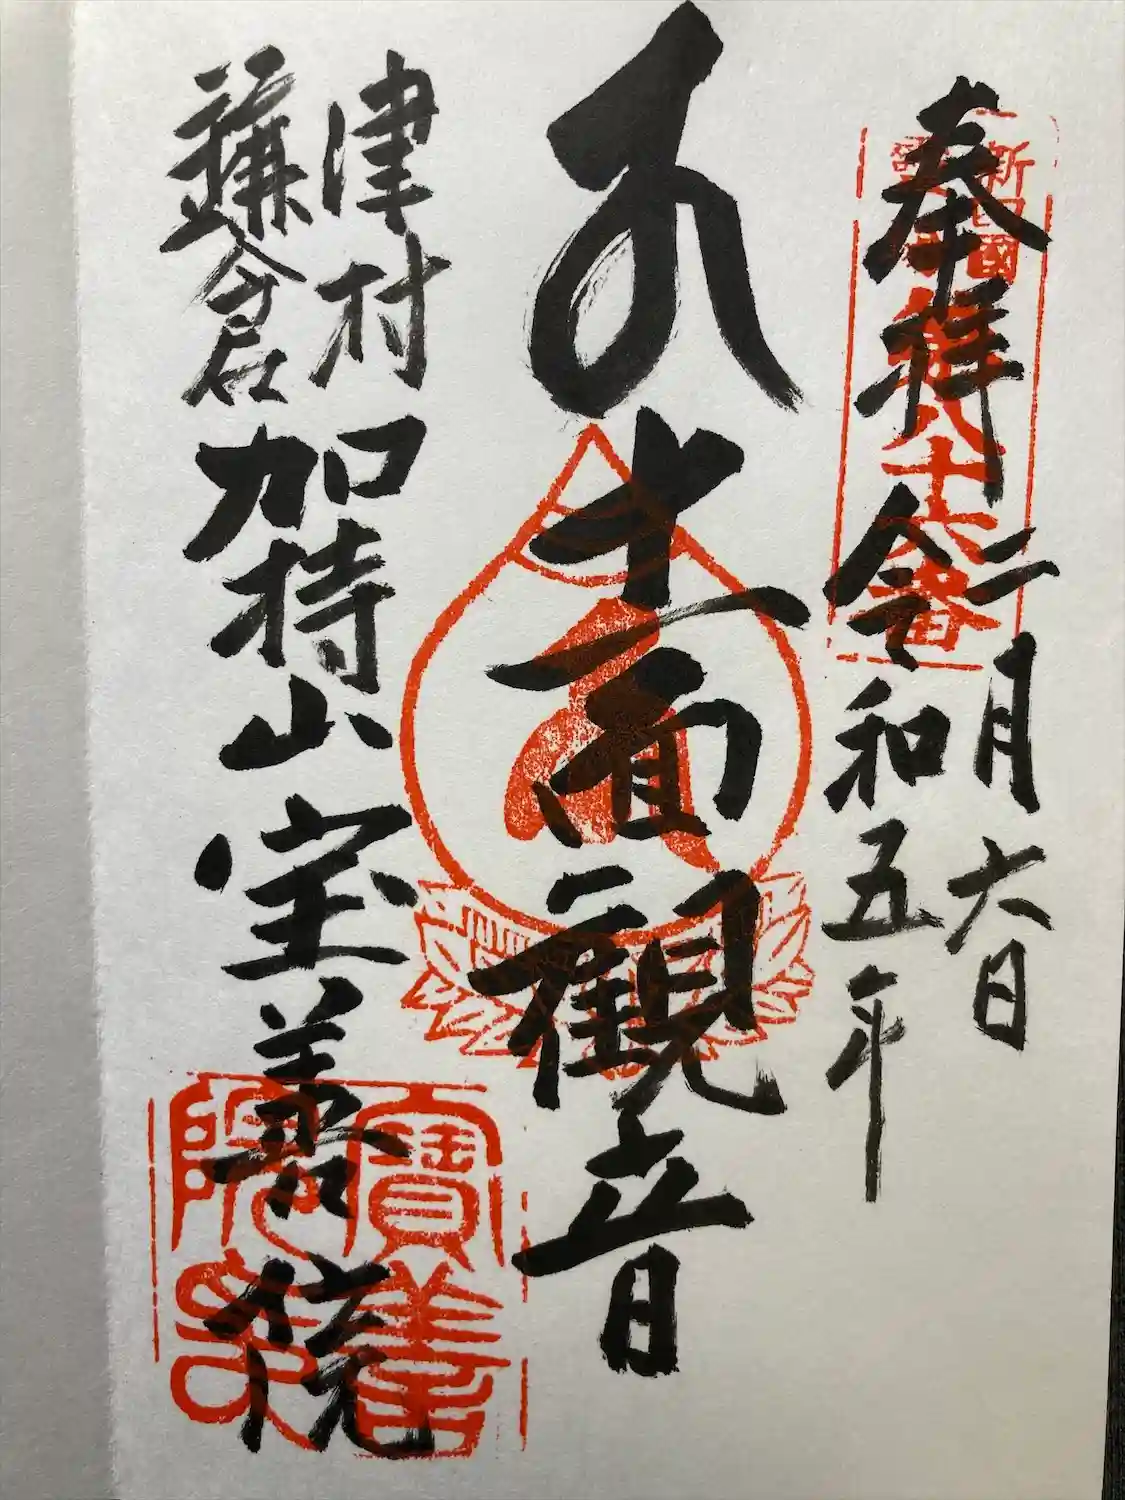 奉拝
令和五年
二月六日
新四國
八十六番
十一面観音
津村
鎌倉
加持山宝善院
寶善
院印